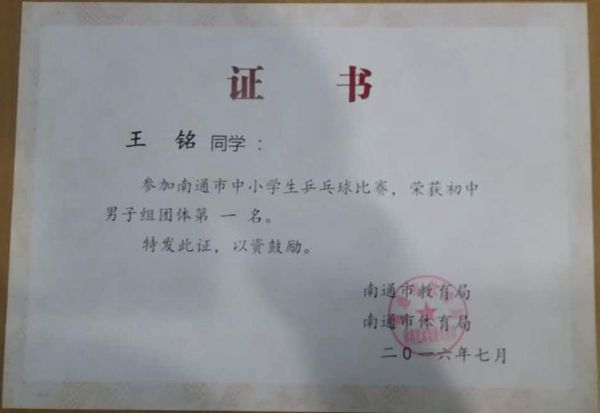 证 书
王 铭 同学：
参加南通市中小学生乒乓球比赛，荣获初中
男子组团体第 一 名。
特发此证，以资鼓励。
南通市教育局
南通市体育局
二〇一六年七月